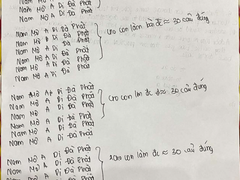 Nam Mô A Di Đà Phật
Nam Mô A Di Đà Phật
Nam Mô A Di Đà Phật
Nam Mô A Di Đà Phật
Nam Mô A Di Đà Phật
Nam Mô A Di Đà Phật
Nam Mô A Di Đà Phật
Nam Mô A Di Đà Phật
con làm bài đc ≈ 30 câu đúng
Nam Mô A Di Đà Phật
Nam Mô A Di Đà Phật
Nam Mô A Di Đà Phật
Nam Mô A Di Đà Phật
Nam Mô A Di Đà Phật
cho con lm đc ≈ 30 câu đúng
Nam Mô A Di Đà Phật
Nam Mô A Di Đà Phật
Nam Mô A Di Đà Phật
con làm đc ≈ 30 câu đúng